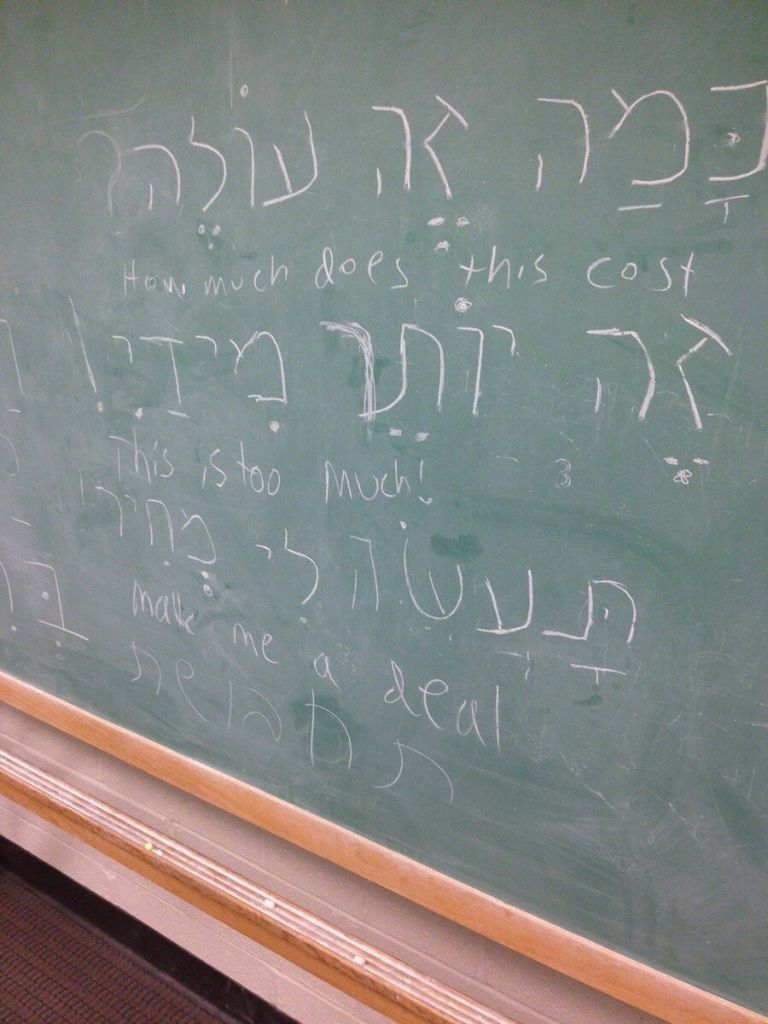 כַּמָה זֶה עוֹלֶה?
How much does this cost
זֶה יוֹתֵר מִידַיִ
This is too much!
תַּעֲשֶׂה לִי מְחִיר
make me a deal
תחבושת